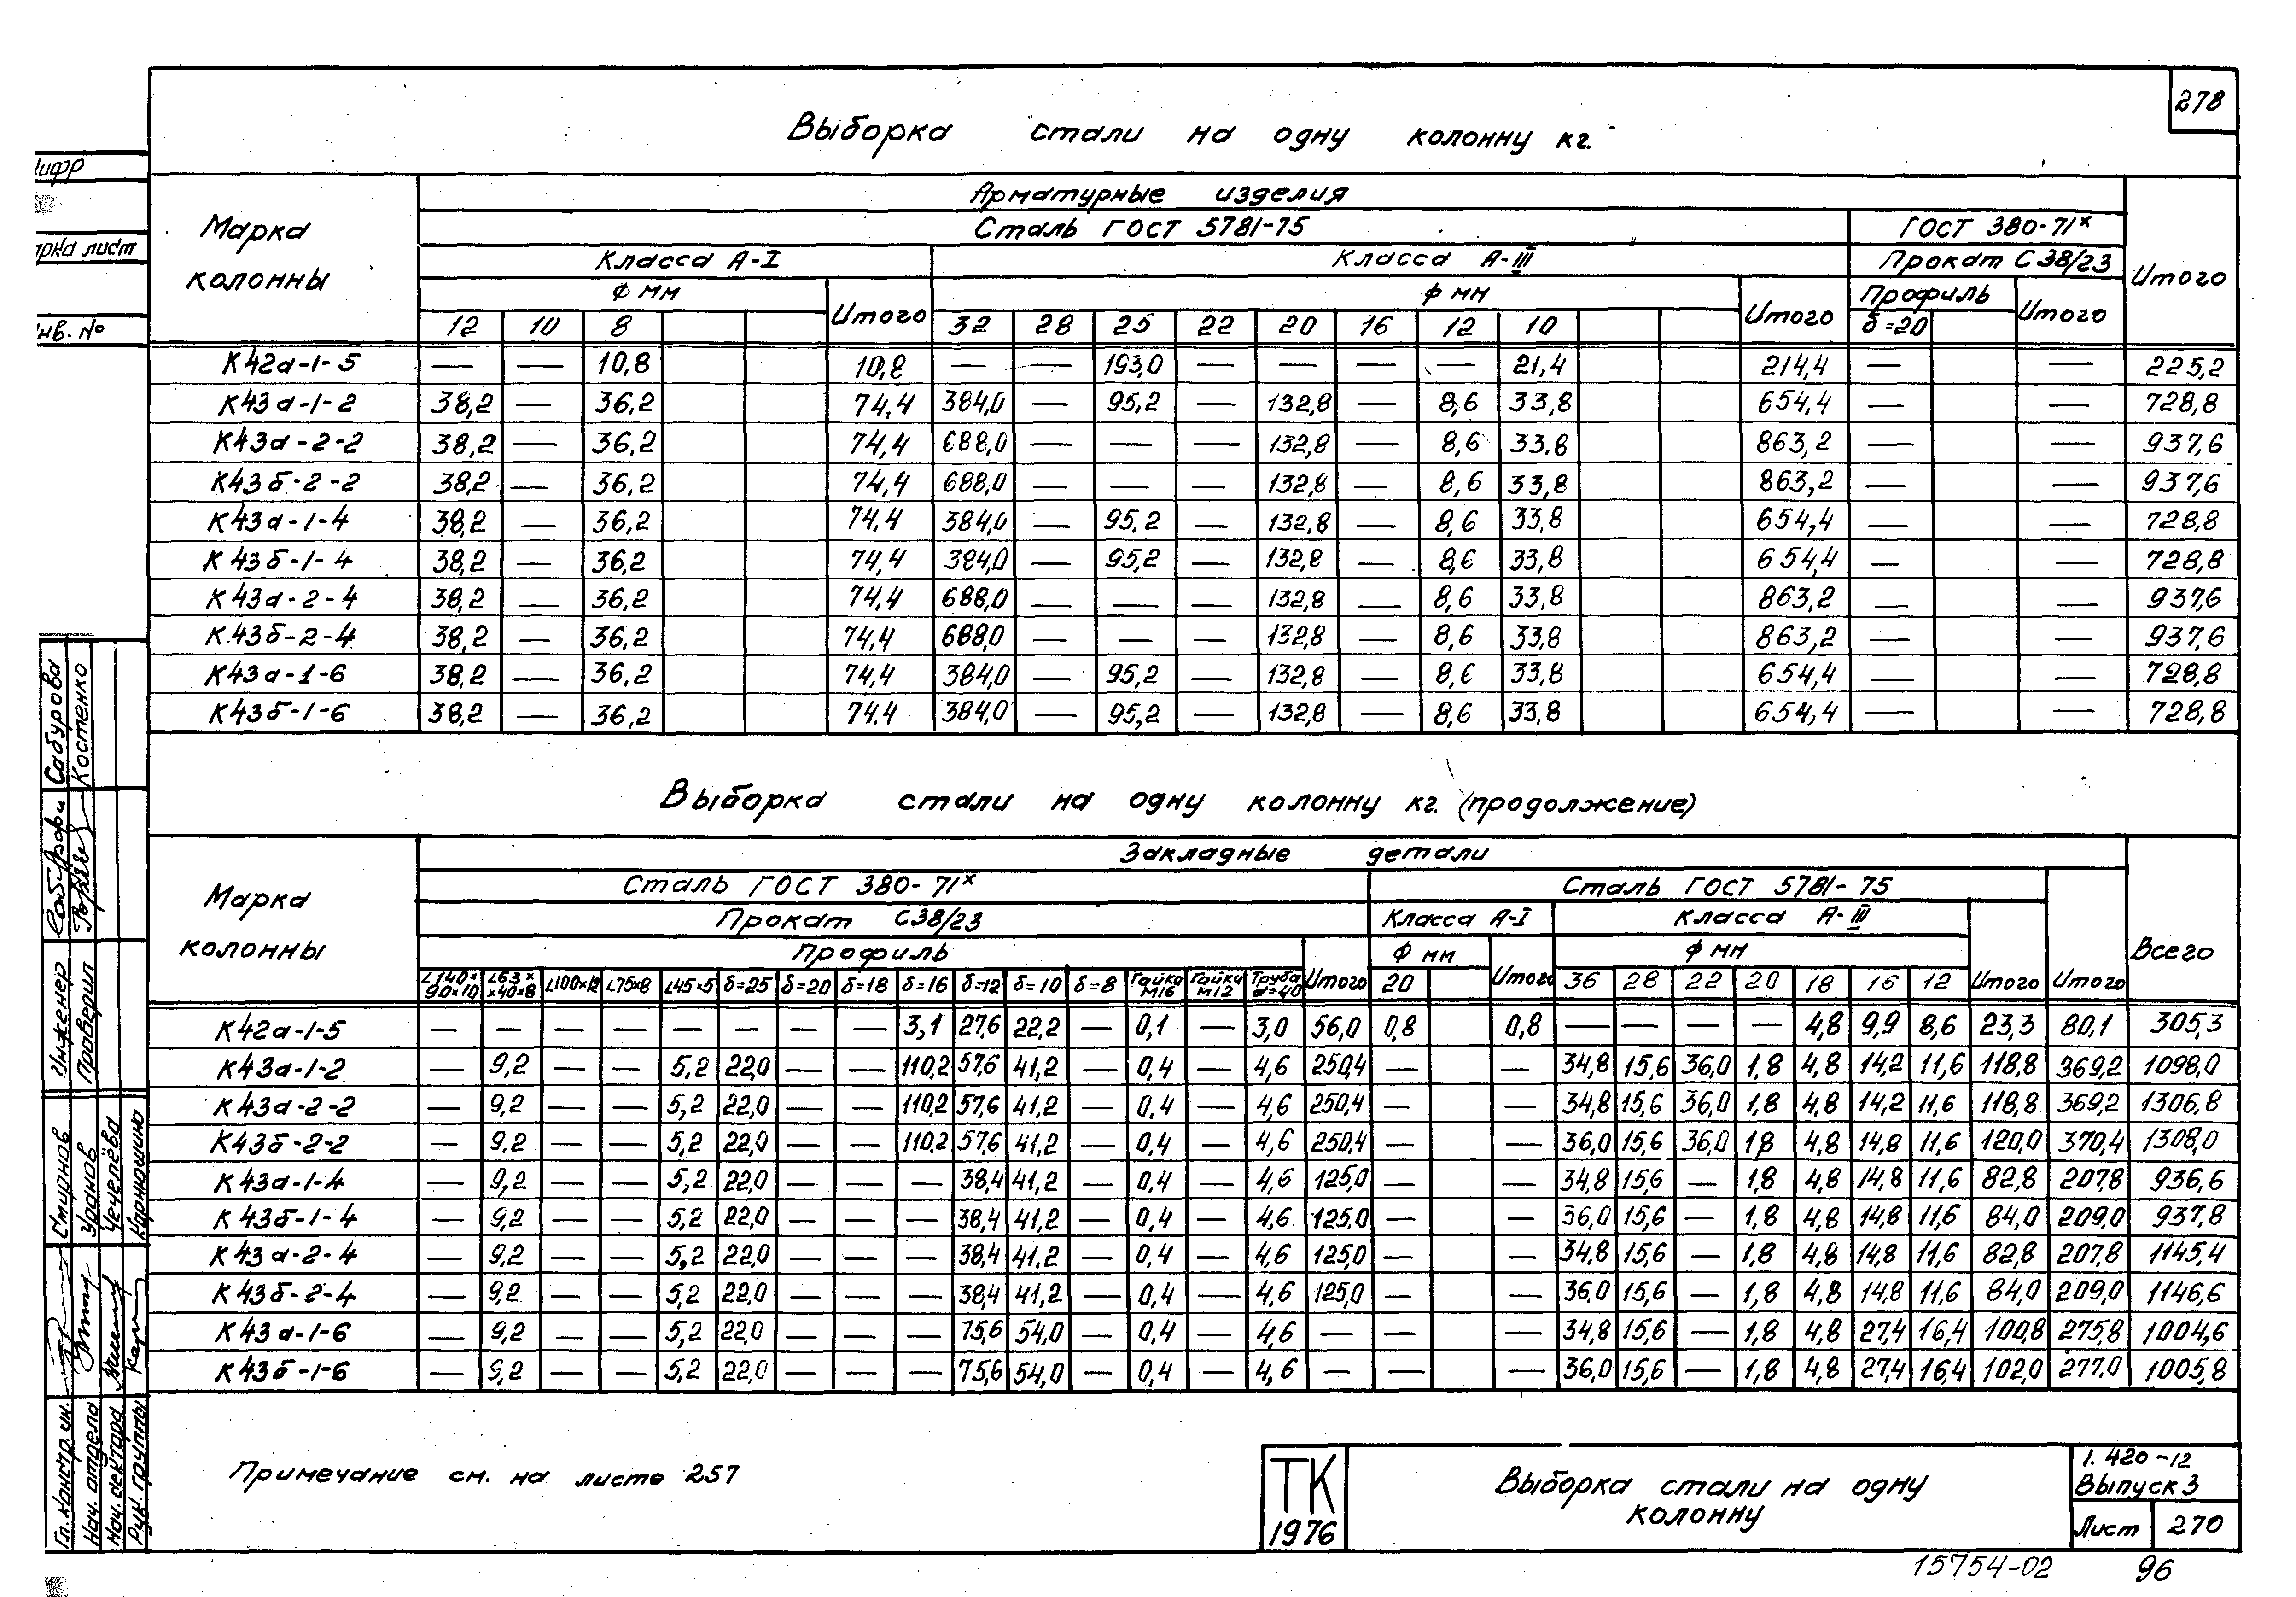 278
Выборка стали на одну колонну кг.
Марка колонны
Арматурные изделия
Сталь ГОСТ 5781-75
ГОСТ 380-71х
Класса А-I
Класса А-III
Прокат С38/23
Итого
ф мм
Итого
ф мм
Итого
Профиль
Итого
12 10 8 32 28 25 22 20 16 12 10 δ=20
К42а-1-5 — — 10,8 10,8 — — 193,0 — — — — 21,4 214,4 — — 225,2
К43а-1-2 38,2 — 36,2 74,4 384,0 — 95,2 — 132,8 — 8,6 33,8 654,4 — — 728,8
К43а-2-2 38,2 — 36,2 74,4 688,0 — — — 132,8 — 8,6 33.8 863,2 — — 937,6
К43б-2-2 38,2 — 36,2 74,4 688,0 — — — 132,8 — 8,6 33,8 863,2 — — 937,6
К43а-1-4 38,2 — 36,2 74,4 384,0 — 95,2 — 132,8 — 8,6 33,8 654,4 — — 728,8
К43б-1-4 38,2 — 36,2 74,4 384,0 — 95,2 — 132,8 — 8,6 33,8 654,4 — — 728,8
К43а-2-4 38,2 — 36,2 74,4 688,0 — — — 132,8 — 8,6 33,8 863,2 — — 937,6
К43б-2-4 38,2 — 36,2 74,4 688,0 — — — 132,8 — 8,6 33,8 863,2 — — 937,6
К43а-1-6 38,2 — 36,2 74,4 384,0 — 95,2 — 132,8 — 8,6 33,8 654,4 — — 728,8
К43б-1-6 38,2 — 36,2 74.4 384,0 — 95,2 — 132,8 — 8,6 33,8 654,4 — — 728,8
Выборка стали на одну колонну кг. (продолжение)
Марка колонны
Закладные детали
Всего
Сталь ГОСТ 380-71х
Сталь ГОСТ 5781-75
Итого
Прокат С38/23
Класса А-I
Класса А-III
Профиль
Итого
ф мм
Итого
ф мм
Итого
L140×90×10 L63××40×8 L100×12 L75×8 L45×5 δ=25 δ=20 δ=18 δ=16 δ=12 δ=10 δ=8 Гайка М16 Гайка М12 Труба d=40 20 36 28 22 20 18 16 12
К42а-1-5 — — — — — — — — 3,1 27,6 22,2 — 0,1 — 3,0 56,0 0,8 0,8 — — — — 4,8 9,9 8,6 23,3 80,1 305,3
К43а-1-2 — 9,2 — — 5,2 22,0 — — 110,2 57,6 41,2 — 0,4 — 4,6 250,4 — — 34,8 15,6 36,0 1,8 4,8 14,2 11,6 118,8 369,2 1098,0
К43а-2-2 — 9,2 — — 5,2 22,0 — — 110,2 57,6 41,2 — 0,4 — 4,6 250,4 — — 34,8 15,6 36,0 1,8 4,8 14,2 11,6 118,8 369,2 1306,8
К43б-2-2 — 9,2 — — 5,2 22,0 — — 110,2 57,6 41,2 — 0,4 — 4,6 250,4 — — 36,0 15,6 36,0 1,8 4,8 14,8 11,6 120,0 370,4 1308,0
К43а-1-4 — 9,2 — — 5,2 22,0 — — — 38,4 41,2 — 0,4 — 4,6 125,0 — — 34,8 15,6 — 1,8 4,8 14,8 11,6 82,8 207,8 936,6
К43б-1-4 — 9,2 — — 5,2 22,0 — — — 38,4 41,2 — 0,4 — 4,6 125,0 — — 36,0 15,6 — 1,8 4,8 14,8 11,6 84,0 209,0 937,8
К43а-2-4 — 9,2 — — 5,2 22,0 — — — 38,4 41,2 — 0,4 — 4,6 125,0 — — 34,8 15,6 — 1,8 4,8 14,8 11,6 82,8 207,8 1145,4
К43б-2-4 — 9,2 — — 5,2 22,0 — — — 38,4 41,2 — 0,4 — 4,6 125,0 — — 36,0 15,6 — 1,8 4,8 14,8 11,6 84,0 209,0 1146,6
К43а-1-6 — 9,2 — — 5,2 22,0 — — — 75,6 54,0 — 0,4 — 4,6 — — — 34,8 15,6 — 1,8 4,8 27,4 16,4 100,8 275,8 1004,6
К43б-1-6 — 9,2 — — 5,2 22,0 — — — 75,6 54,0 — 0,4 — 4,6 — — — 36,0 15,6 — 1,8 4,8 27,4 16,4 102,0 277,0 1005,8
Примечание см. на листе 257
ТК
1976
Выборка стали на одну
колонну
1.420-12
Выпуск 3
Лист 270
15754-02
96
Инженер Сабурова
Проверил Костенко
Гл. констр. ин. Смирнов
Нач. отдела Уранов
Нач. сектора Чечелёва
Рук. группы
лист
Инв. №